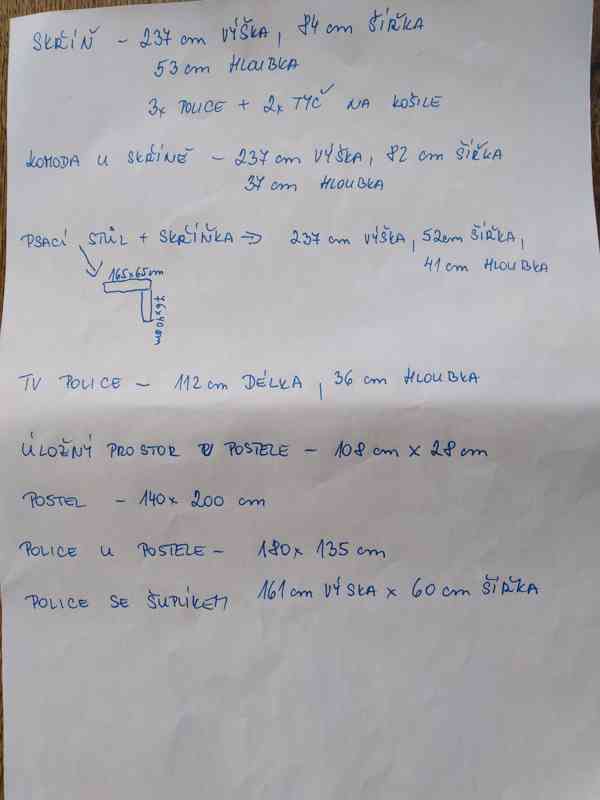 SKŘÍŇ - 237 cm VÝŠKA, 84 cm ŠÍŘKA
53 cm HLOUBKA
3x POLICE + 2x TYČ NA KOŠILE
KOMODA U SKŘÍNĚ - 237 cm VÝŠKA, 82 cm ŠÍŘKA
37 cm HLOUBKA
PSACÍ STŮL + SKŘÍŇKA => 237 cm VÝŠKA, 52cm ŠÍŘKA,
41 cm HLOUBKA
165x65cm
76x40cm
TV POLICE - 112 cm DÉLKA, 36 cm HLOUBKA
ÚLOŽNÝ PROSTOR U POSTELE - 108 cm x 28 cm
POSTEL - 140x 200 cm
POLICE U POSTELE - 180x 135 cm
POLICE SE ŠUPLÍKEM 161 cm VÝSKA x 60 cm ŠÍŘKA